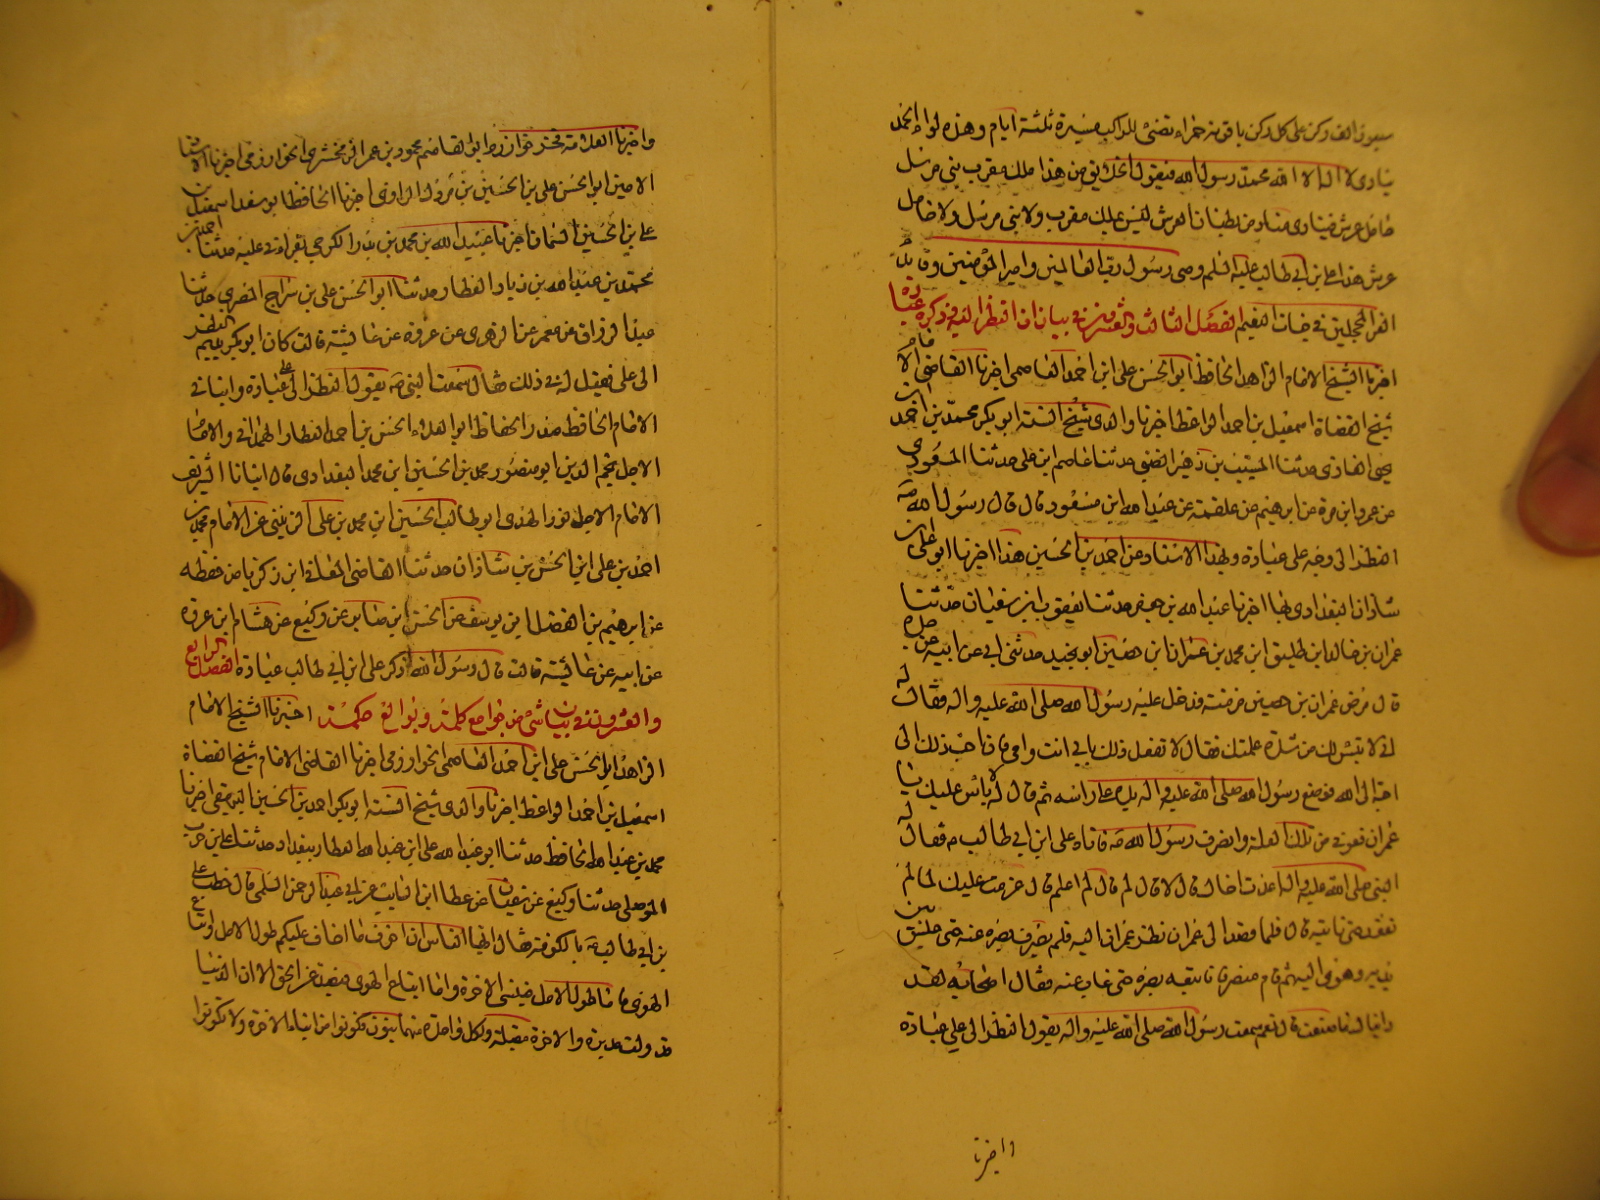 سبعون الف ركن على كل ركن ياقوتة حمراء تضئ للراكب مسيرة ثلثة ايام وهذه لواء الحمد
ينادى لا اله الا الله محمد رسول الله فيقول الخلايق من هذا ملك مقرب نبى مرسل
حامل عرش فينادى مناد من بطنان العرش ليس بملك مقرب ولا نبى مرسل ولا حامل
عرش هذا على بن ابى طالب عليه السلم وصى رسول رب العالمين وامير المؤمنين وقائد
الغر المحجلين فى جنات النعيم الفصل الثالث والعشرون فى بيان ان النظر اليه وذكره عبادة
اخبرنا الشيخ الامام الزاهد الحافظ ابو الحسن على ابن احمد العاصمى اخبرنا القاضى الامام
شيخ القضاة اسمعيل بن احمد الواعظ اخبرنا والدى شيخ السنة ابو بكر محمد بن احمد ابن
يحيى القارى حدثنا المسيب بن زهير الضبى حدثنا عاصم ابن على حدثنا المسعودى
عن عمرو ابن مرة عن ابرهيم عن علقمة عن عبد الله ابن مسعود قال قال رسول الله صه
النظر الى وجه على عبادة وبهذا الاسناد عن احمد بن الحسين هذا اخبرنا ابو على بن
شاذان البغدادى بها اخبرنا عبد الله بن جعفر حدثنا يعقوب ابن سفيان حدثنا
عمران بن خالد ابن طليق ابن محمد بن عمران ابن حصين ابو نجيد حدثنى ابى عن ابيه عن جده
قال مرض عمران بن حصين مرضة فدخل عليه رسول الله صلى الله عليه واله فقال له
انى لا يئس لك من شدة علتك فقال لا تفعل ذلك بابى انت وامى فان احب ذلك الى
احبه الى الله فوضع رسول الله صلى الله عليه واله يده على راسه ثم قال لا باس عليك يا
عمران فعوفى من تلك العلة وانصرف رسول الله صه فاتاه على ابن ابى طالب ع فقال له
النبى صلى الله عليه واله اعدت اخاك قال لا قال لم قال لم اعلم قال عزمت عليك لما لم
تقعد حتى تاتيه قال فلما قعد الى عمران نظر عمران اليه فلم يصرف بصره عنه حتى جلس بين
يديه وهو فى اليه ثم قام منصرفا فاتبعه بصره حتى غاب عنه فقال اصحابه لقد
راينا لما صنعت قال نعم سمعت رسول الله صلى الله عليه واله يقول النظر الى على عبادة
واخبرنا
واخبرنا العلامة فخر خوارزم ابو القاسم محمود بن عمر الزمخشرى الخوارزمى اخبرنا الاستاد
الامين ابو الحسن على بن الحسين بن مردك الرازى اخبرنا الحافظ ابو سعد اسمعيل بن
على بن الحسين السمان اخبرنا عبيد الله بن محمد بن بدر الكرجى بقراءتى عليه حدثنا
محمد بن عبد الله بن زياد القطان حدثنا ابو الحسن على بن سراج المصرى حدثنا
عبد الرزاق عن معمر عن الزهرى عن عروة عن عائشة قالت كان ابو بكر يديم النظر
الى على فقيل له فى ذلك فقال سمعت النبى صه يقول النظر الى على عبادة وانبانى
الامام الحافظ صدر الحفاظ ابو العلاء الحسن بن احمد العطار الهمدانى والامام
الاجل نجم الدين ابو منصور محمد بن الحسين ابن محمد البغدادى قال انبانا الشريف
الامام الاجل نور الهدى ابو طالب الحسين ابن محمد بن على الزينبى عن الامام محمد بن
احمد بن على ابن الحسن بن شاذان حدثنا القاضى المعافى ابن زكريا من حفظه
عن ابرهيم بن الفضل ابن يوسف عن الحسن ابن صابر عن وكيع عن هشام ابن عروة
عن ابيه عن عائشة قالت قال رسول الله ذكر على ابن ابى طالب عبادة الفصل الرابع
والعشرون فى بيان شئ من جوامع كلمه وبوالغ حكمه اخبرنا الشيخ الامام
الزاهد ابو الحسن على ابن احمد العاصمى الخوارزمى اخبرنا القاضى الامام شيخ القضاة
اسمعيل بن احمد الواعظ اخبرنا والدى شيخ السنة ابو بكر احمد بن الحسين البيهقى اخبرنا
محمد بن عبد الله الحافظ حدثنا ابو عبد الله على ابن عبد الله العطار ببغداد حدثنا على بن حرب
الموصلى حدثنا وكيع عن سفيان عن عطا ابن السايب عن ابى عبد الرحمن السلمى قال خطب على
بن ابى طالب ع بالكوفة فقال ايها الناس ان اخوف ما اخاف عليكم طول الامل واتباع
الهوى فاما طول الامل فينسى الاخرة واما اتباع الهوى فيصد عن الحق الا ان الدنيا
قد ولت مدبرة والاخرة مقبلة ولكل واحدة منهما بنون فكونوا من ابناء الاخرة ولا تكونوا